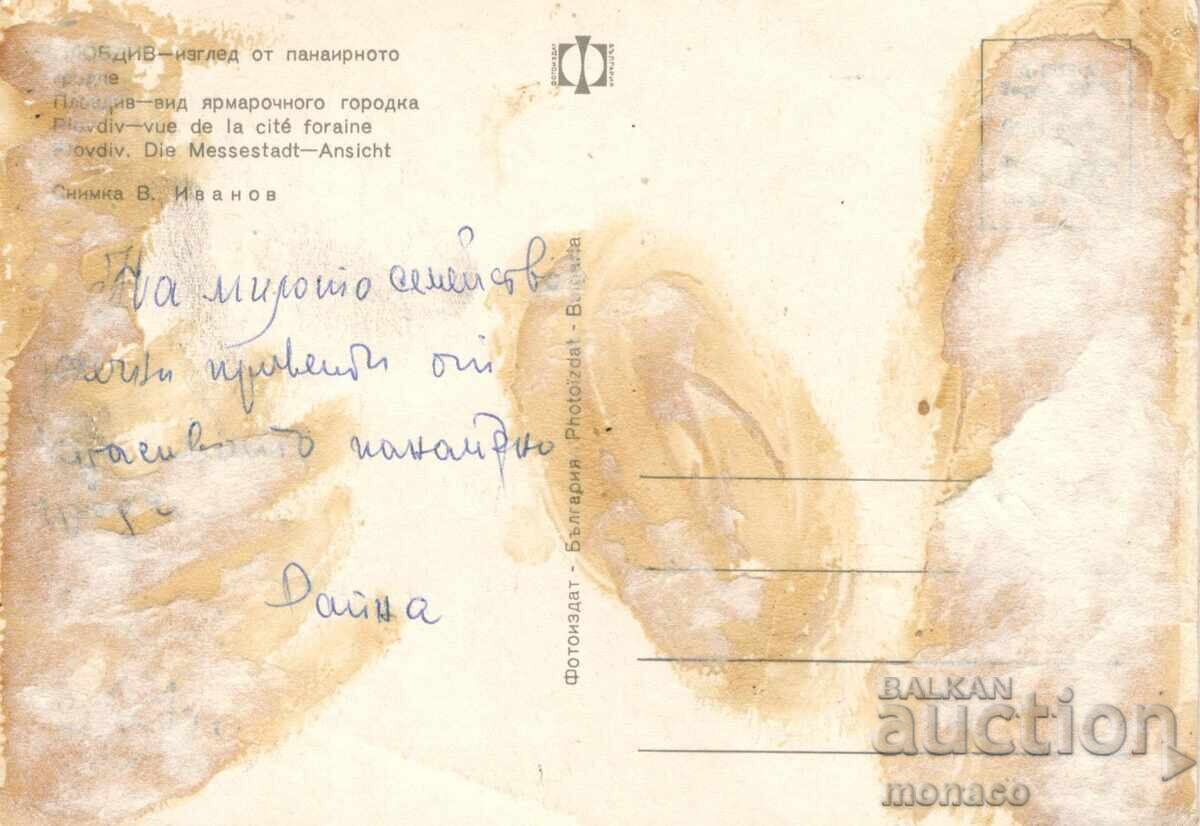 ПЛОВДИВ—изглед от панаирното
градче
Пловдив—вид ярмарочного городка
Plovdiv—vue de la cité foraine
Plovdiv. Die Messestadt—Ansicht
Снимка В. Иванов
ФОТОИЗДАТ
БЪЛГАРИЯ
На милото семейство
привети от
панаирно
Дайна
Фотоиздат - България Photoizdat - Bulgaria
BALKAN
auction
monaco